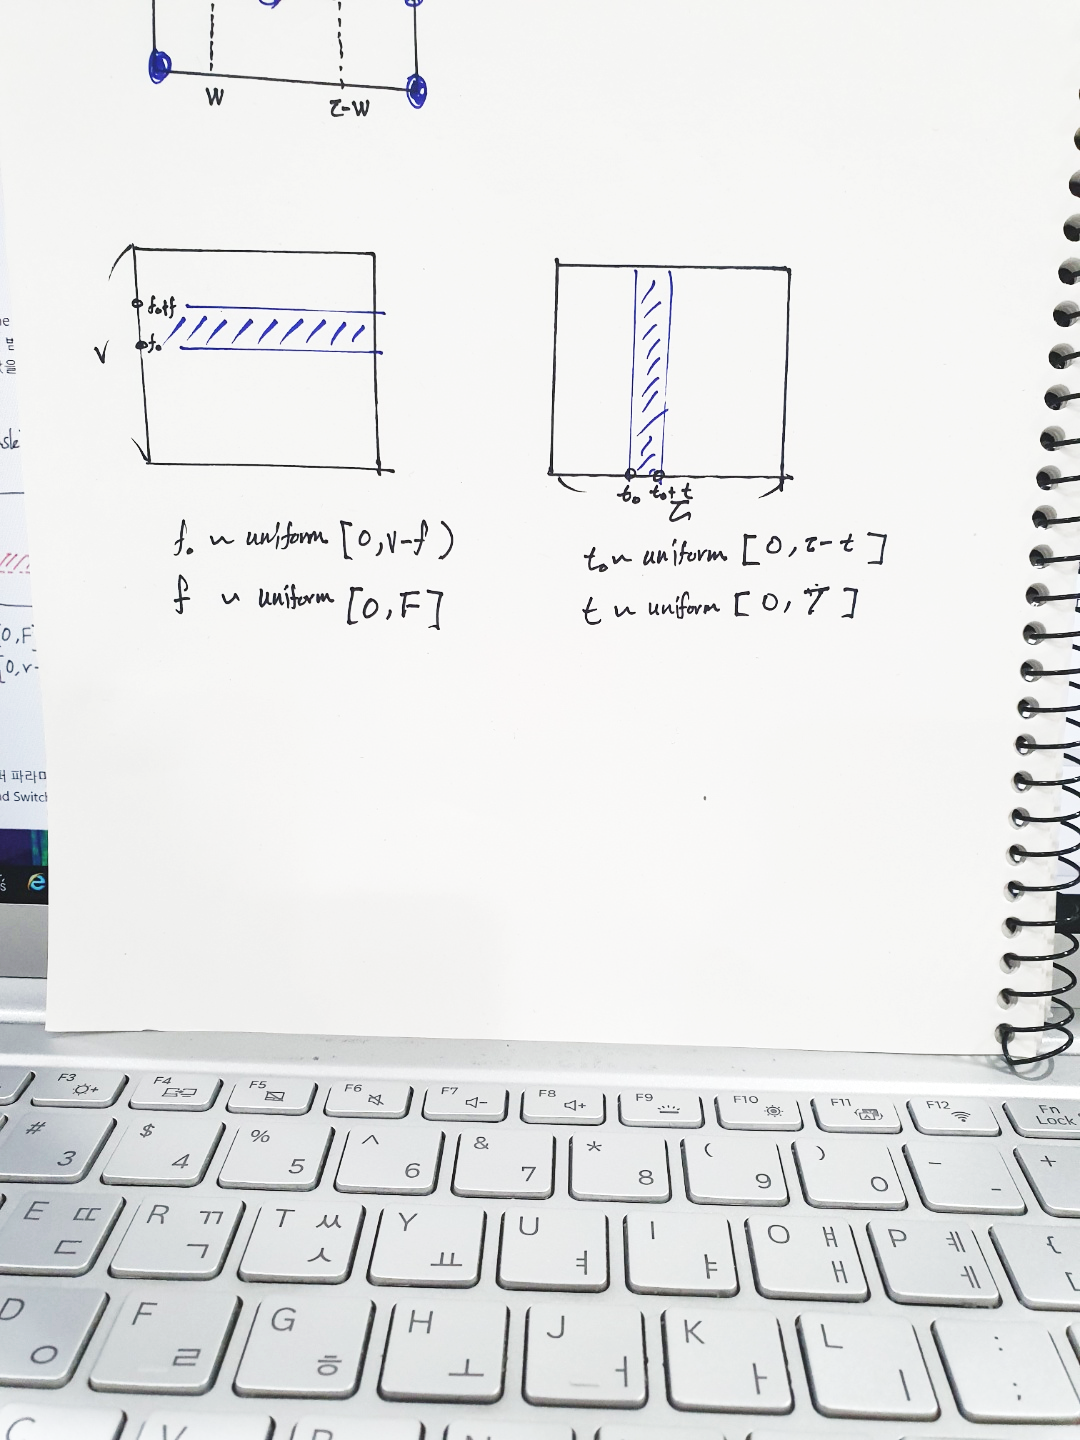 W
τ-W
f₀+f
f₀
V
t₀
t₀+t
τ
f₀ ~ uniform [0, v-f)
f ~ uniform [0, F]
t₀ ~ uniform [0, τ-t]
t ~ uniform [0, T]
[0, F]
[0, v-
파라미
nd Switch
F3
F4
F5
F6
F7
F8
F9
F10
F11
F12
Fn Lock
# 3
$ 4
% 5
^ 6
& 7
* 8
( 9
) 0
- -
+
E ㄸ ㄷ
R ㄲ ㄱ
T ㅆ ㅅ
Y ㅛ
U ㅕ
I ㅑ
O ㅒ ㅐ
P ㅖ ㅔ
{ [
D ㅇ
F ㄹ
G ㅎ
H ㅗ
J ㅓ
K ㅏ
L ㅣ
: ;